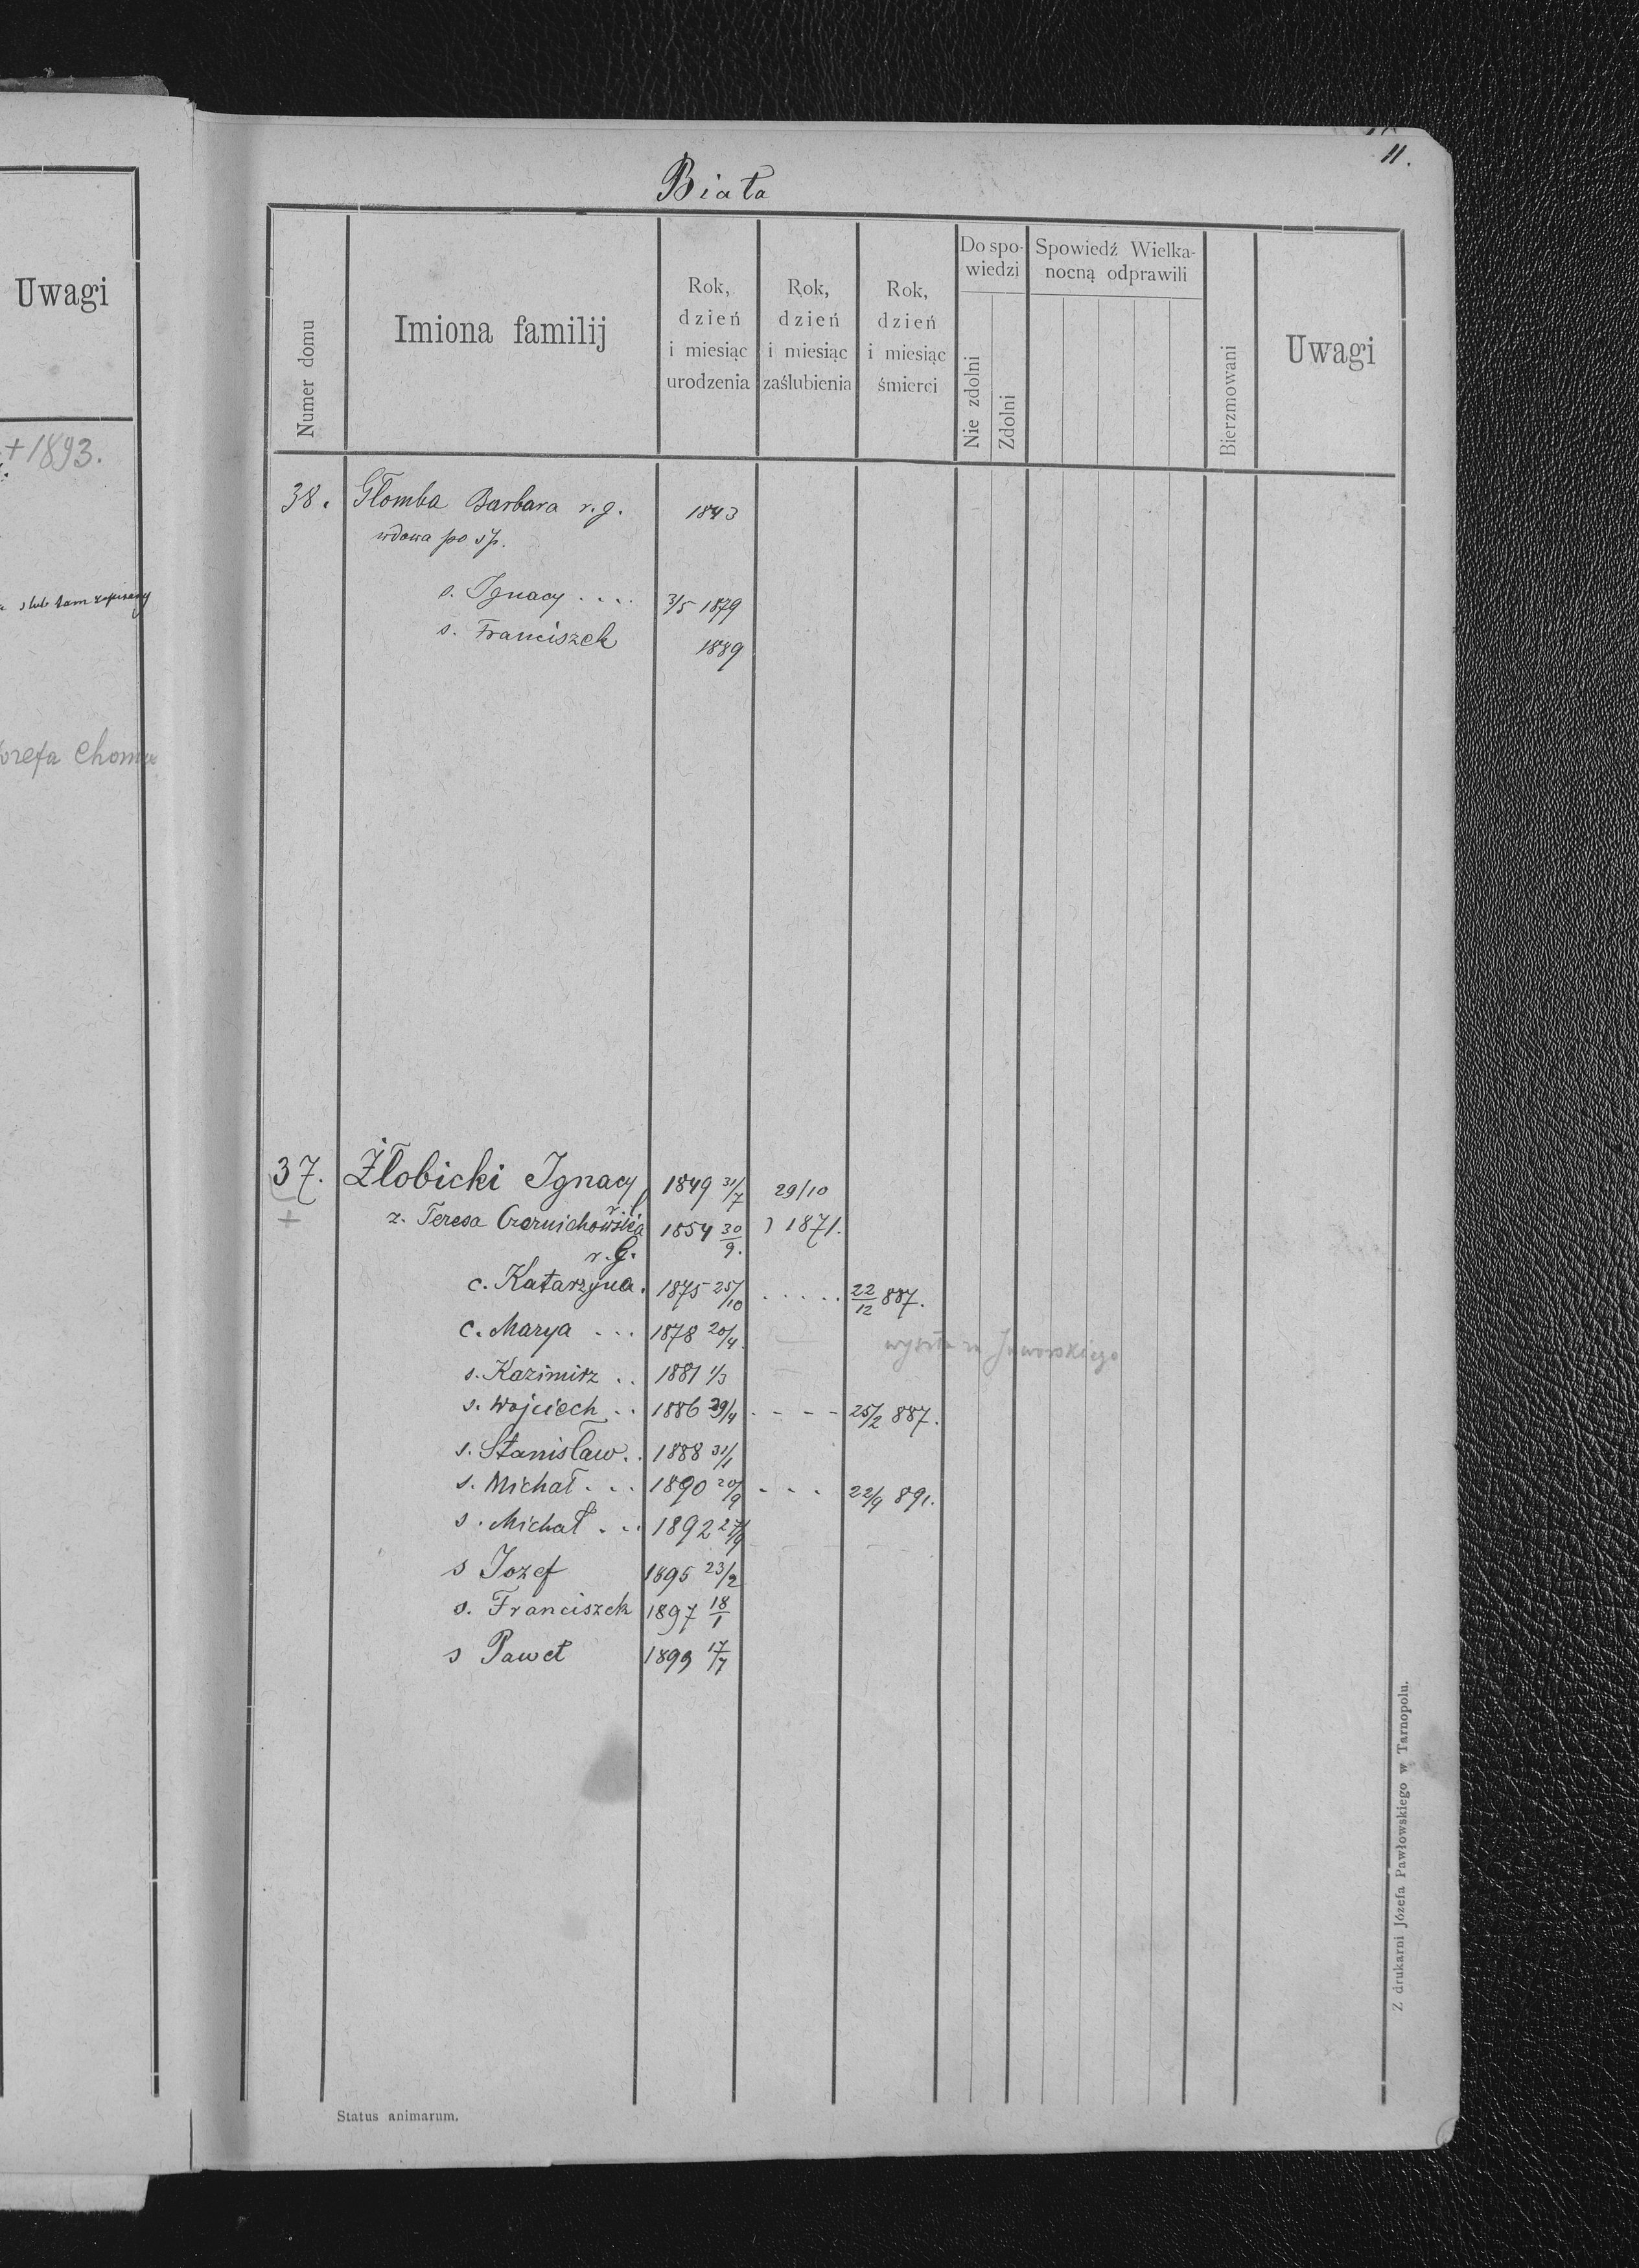 11.
Biała
Uwagi
+1893.
slub tam zapisany
Numer domu
Imiona familij
Rok, dzień i miesiąc urodzenia
Rok, dzień i miesiąc zaślubienia
Rok, dzień i miesiąc śmierci
Do spowiedzi
Nie zdolni
Zdolni
Spowiedź Wielkanocną odprawili
Bierzmowani
Uwagi
38. Głomba Barbara r.g. 1843
wdowa po śp.
s. Ignacy .... 3/5 1879
s. Franciszek 1889
37. Żłobicki Ignacy 1849 31/7 29/10
+ z. Teresa Czernichowska 1854 30/9. 1871.
r.G.
c. Katarzyna. 1875 25/10 ..... 22/12 887.
c. Marya ... 1878 20/4. wyszła za Jaworskiego
s. Kazimirz .. 1881 1/3
s. Wojciech .. 1886 29/4 - - - - 25/2 887.
s. Stanisław.. 1888 31/1
s. Michał ... 1890 20/9 - - - 22/9 891.
s. Michał ... 1892 27/9
s Jozef 1895 23/2
s. Franciszek 1897 18/1
s Paweł 1899 17/7
Status animarum.
Z drukarni Józefa Pawłowskiego w Tarnopolu.